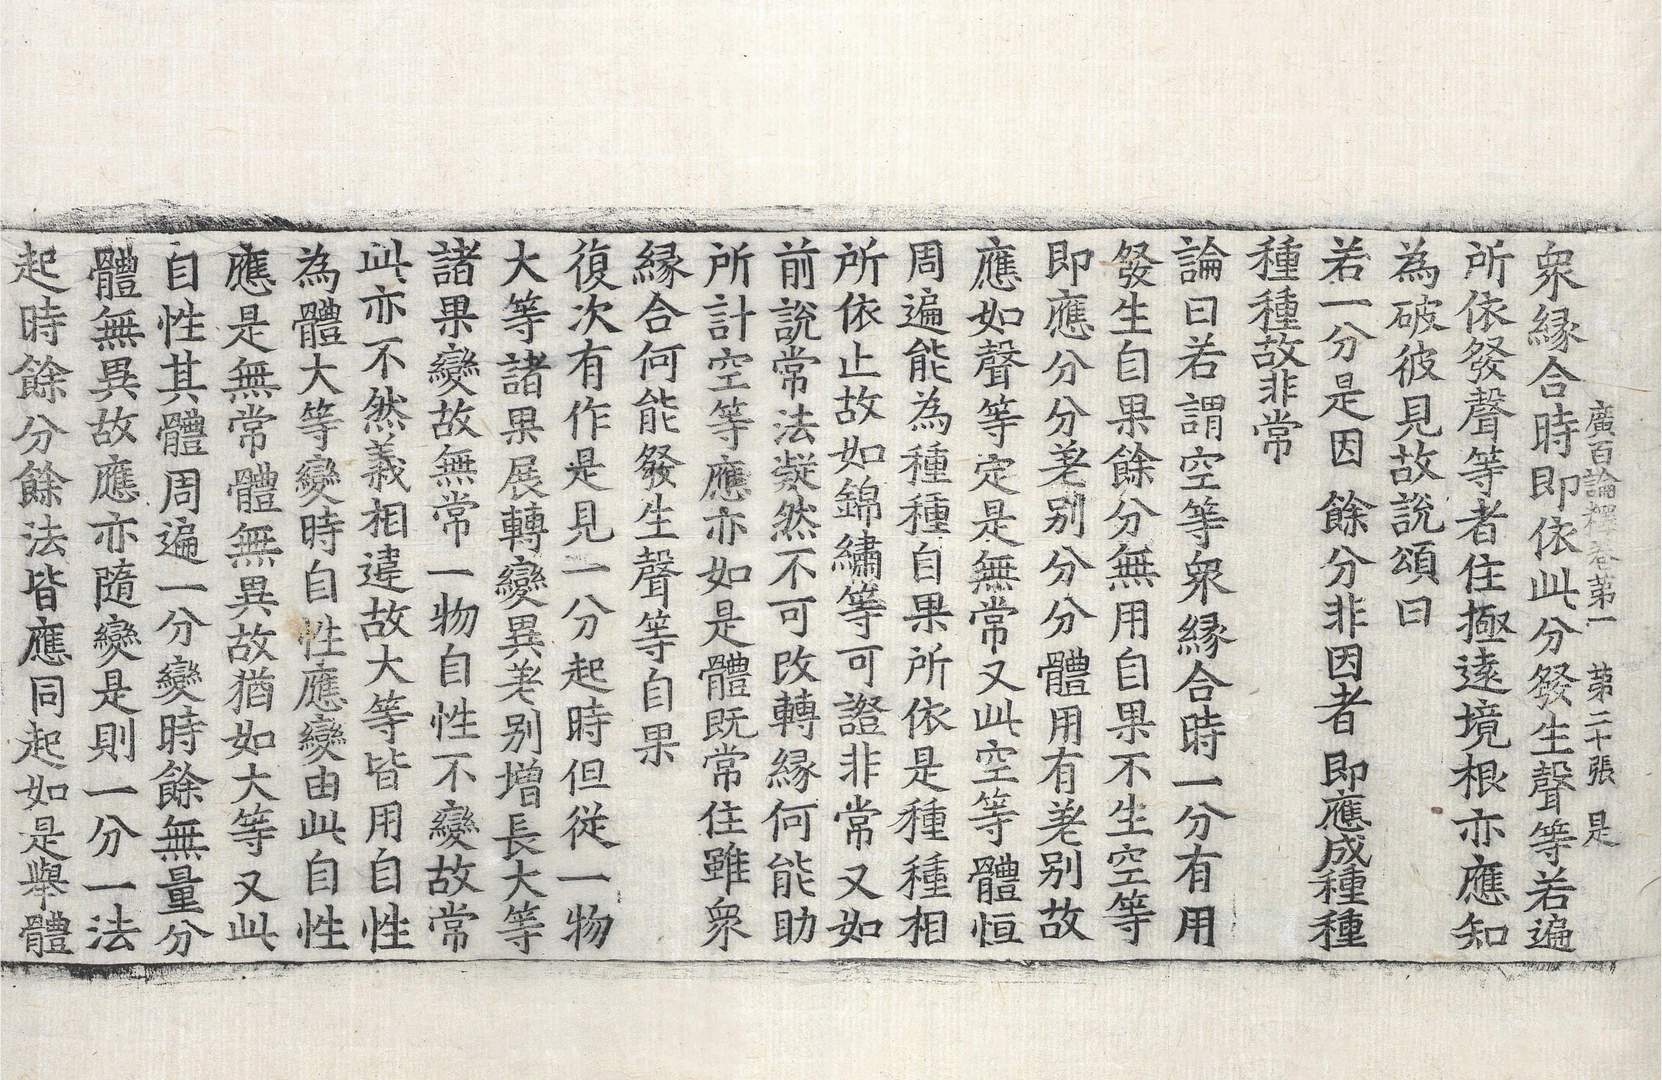 廣百論釋卷第一 第二十張 是
衆縁合時即依此分發生聲等若遍
所依發聲等者住極遠境根亦應知
為破彼見故說頌曰
若一分是因 餘分非因者 即應成種種
種種故非常
論曰若謂空等衆縁合時一分有用
發生自果餘分無用自果不生空等
即應分分差別分分體用有差別故
應如聲等定是無常又此空等體恒
周遍能為種種自果所依是種種相
所依止故如錦繡等可證非常又如
前說常法凝然不可改轉縁何能助
所計空等應亦如是體既常住雖衆
縁合何能發生聲等自果
復次有作是見一分起時但從一物
大等諸果展轉變異差別增長大等
諸果變故無常一物自性不變故常
此亦不然義相違故大等皆用自性
為體大等變時自性應變由此自性
應是無常體無異故猶如大等又此
自性其體周遍一分變時餘無量分
體無異故應亦隨變是則一分一法
起時餘分餘法皆應同起如是舉體